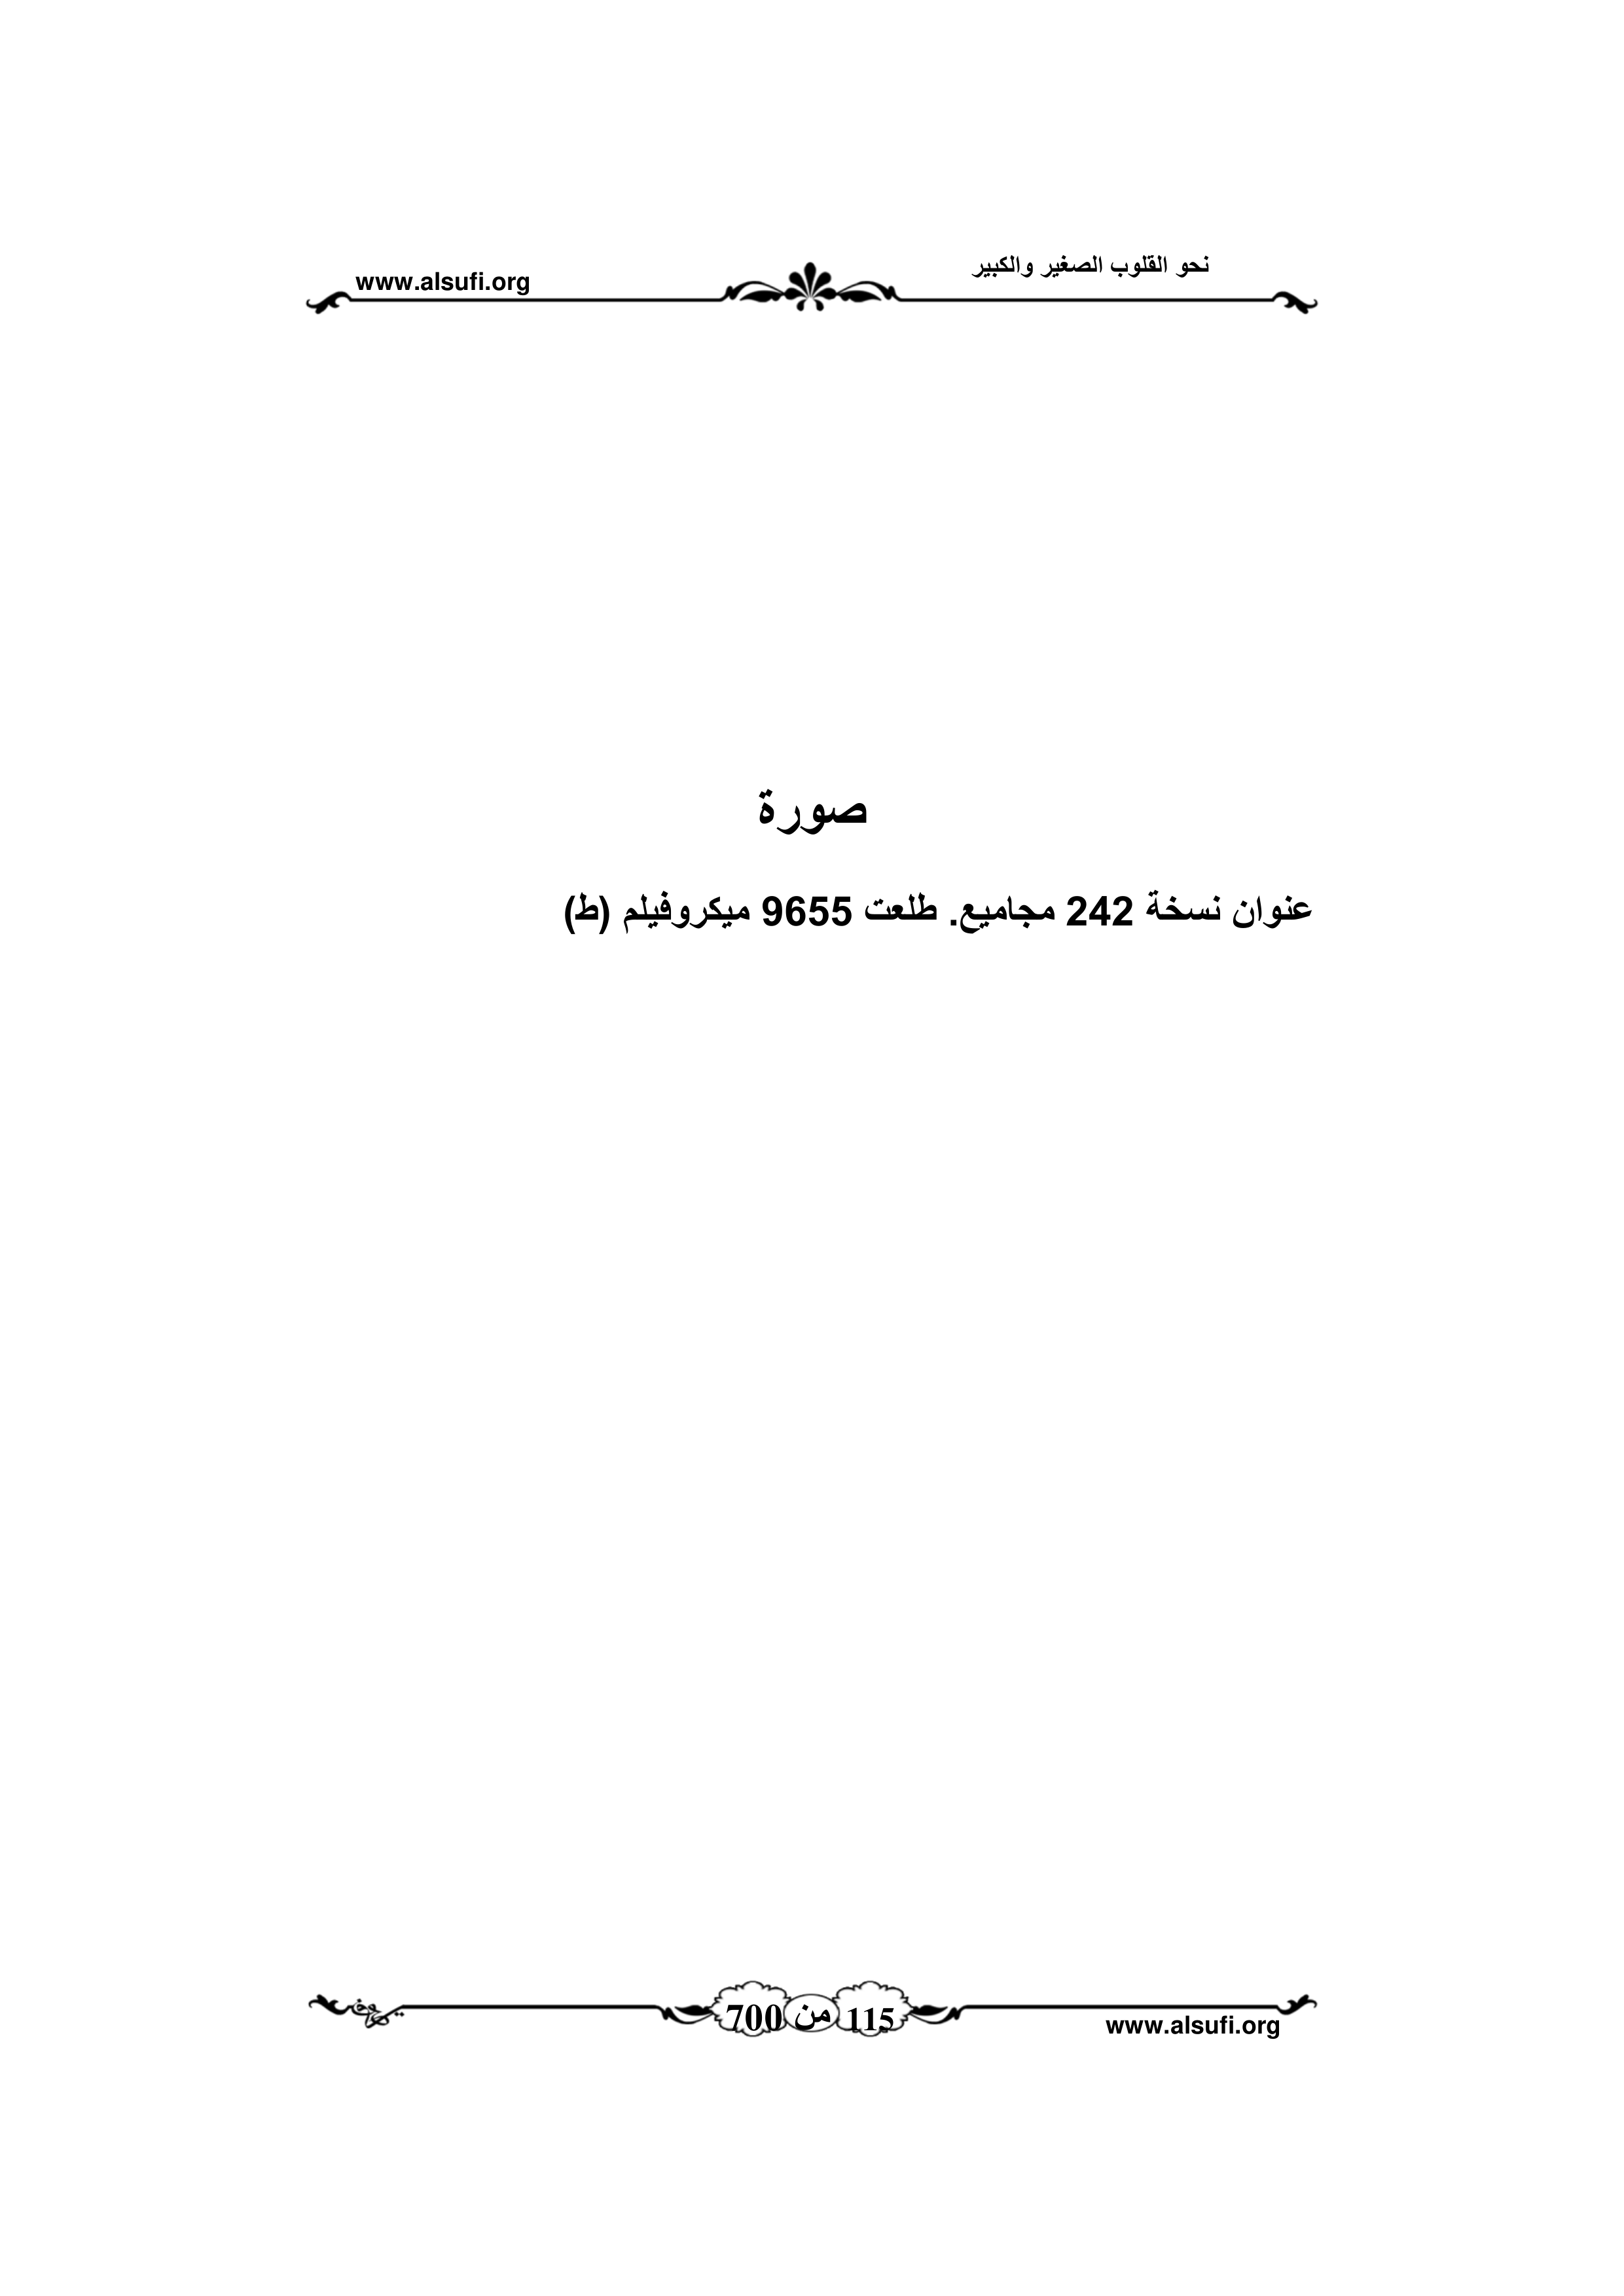 نحو القلوب الصغير والكبير
www.alsufi.org
صورة
عنوان نسخة 242 مجاميع. طلعت 9655 ميكروفيلم (ط)
115 من 700
www.alsufi.org